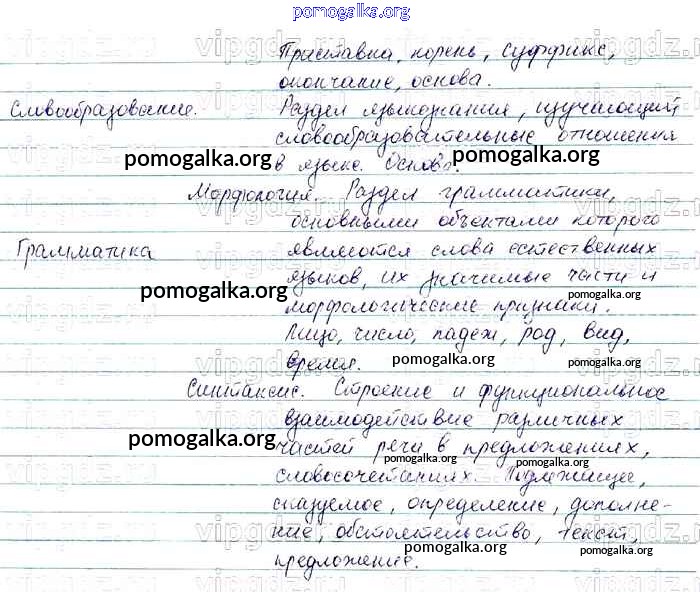 pomogalka.org
Приставка, корень, суффикс,
окончание, основа.
Словообразование. Раздел языкознания, изучающий
словообразовательные отношения
в языке. Основа.
pomogalka.org pomogalka.org
Морфология. Раздел грамматики,
основными объектами которого
Грамматика являются слова естественных
языков, их значимые части и
pomogalka.org pomogalka.org
морфологические признаки.
Лицо, число, падеж, род, вид,
время.
pomogalka.org pomogalka.org
Синтаксис. Строение и функциональное
взаимодействие различных
pomogalka.org
частей речи в предложениях,
pomogalka.org
словосочетаниях. Подлежащее,
сказуемое, определение, дополне-
ние, обстоятельство, текст,
pomogalka.org pomogalka.org
предложение.